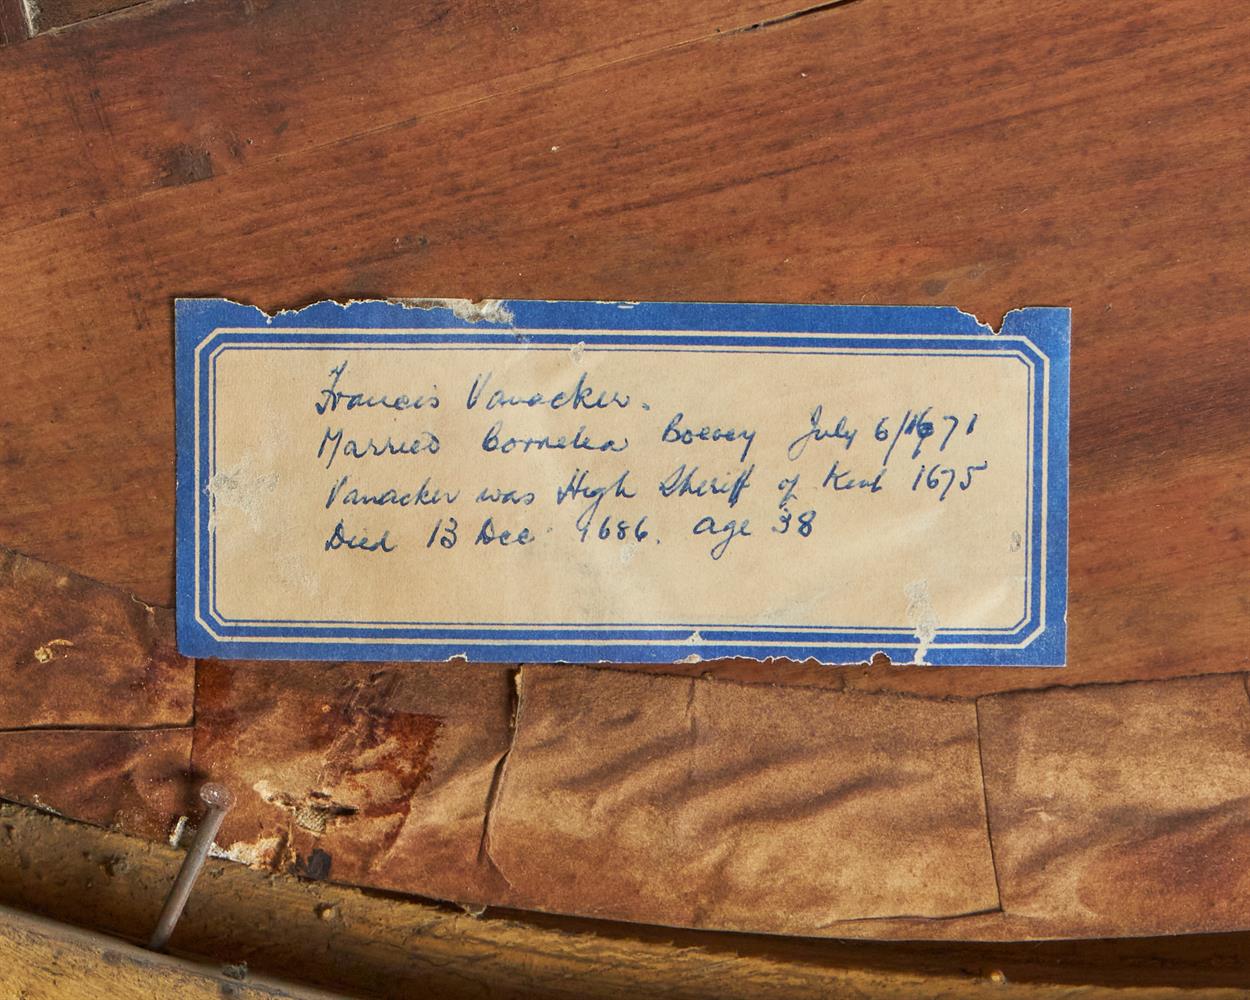 Francis Vanacker.
Married Cornelia Boevey July 6/1671
Vanacker was High Sheriff of Kent 1675
Died 13 Dec 1686. age 38